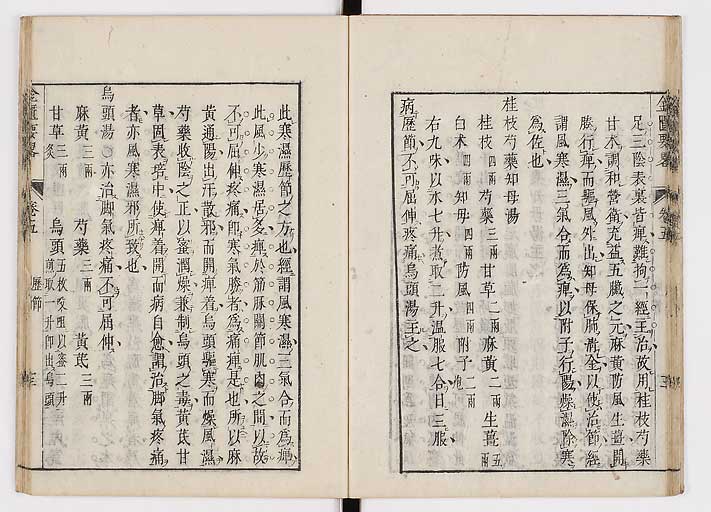 金匱要畧
卷五
足三陰表裏皆痺難拘一經主治故用桂枝芍藥
甘朮調和營衛充益五臟之元麻黃防風生薑開
腠行痺而驅風外出知母保肺清金以使治節經
謂風寒濕三氣合而為痺以附子行陽燥濕除寒
為佐也
桂枝芍藥知母湯
桂枝四兩 芍藥三兩 甘草二兩 麻黃二兩 生薑五兩
白朮四兩 知母四兩 防風四兩 附子炮二兩
右九味以水七升煮取二升溫服七合日三服
病歷節不可屈伸疼痛烏頭湯主之
此寒濕歷節之方也經謂風寒濕三氣合而為痺
此風少寒濕居多痺於筋脉關節肌肉之間以故
不可屈伸疼痛即寒氣勝者為痛痺是也所以麻
黃通陽出汗散邪而開痺着烏頭驅寒而燥風濕
芍藥收陰之正以蜜潤燥兼制烏頭之毒黃芪甘
草固表培中使痺着開而病自愈謂治脚氣疼痛
者亦風寒濕邪所致也
烏頭湯 亦治脚氣疼痛不可屈伸
麻黃三兩 芍藥三兩 黃芪三兩
甘草三兩炙 烏頭五枚㕮咀以蜜二升煎取一升即出烏頭
金匱要畧
卷五
歷節